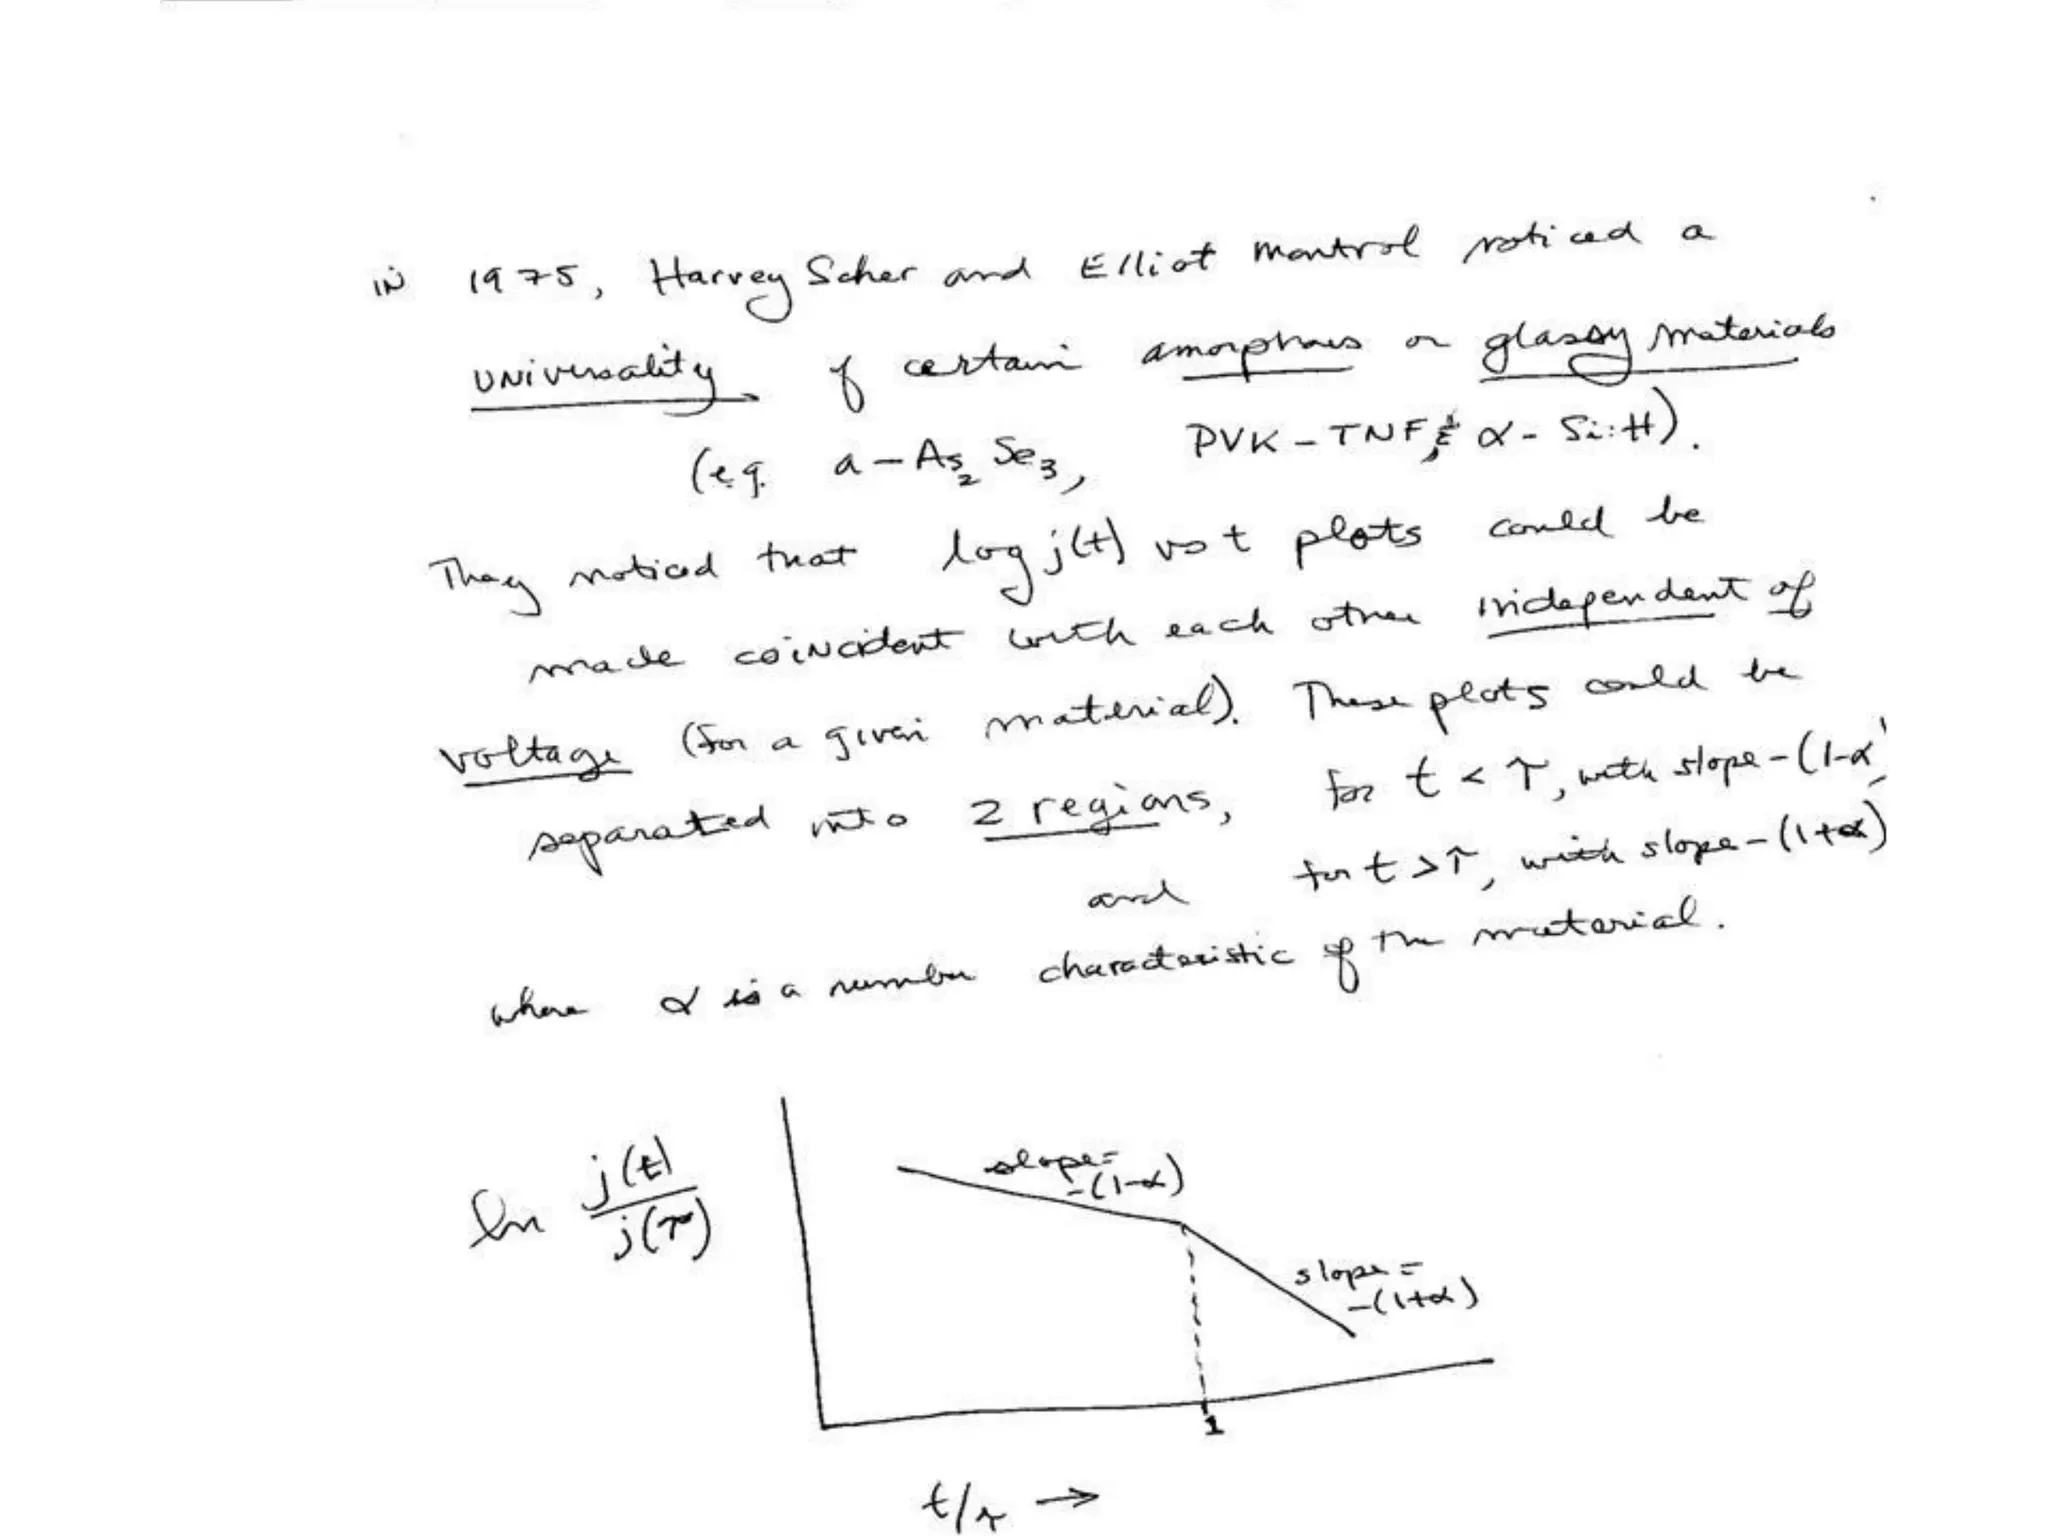 IN 1975, Harvey Scher and Elliot Montrol noticed a
UNiversality of certain amorphous or glassy materials
(e.g. a-As₂Se₃, PVK-TNF, & α-Si:H).
They noticed that log j(t) vs t plots could be
made coiNcident with each other independent of
voltage (for a given material). These plots could be
separated into 2 regions, for t < τ, with slope -(1-α)
and for t > τ, with slope -(1+α)
where α is a number characteristic of the material.
ln j(t)/j(τ)
slope =
-(1-α)
slope =
-(1+α)
1
t/τ →